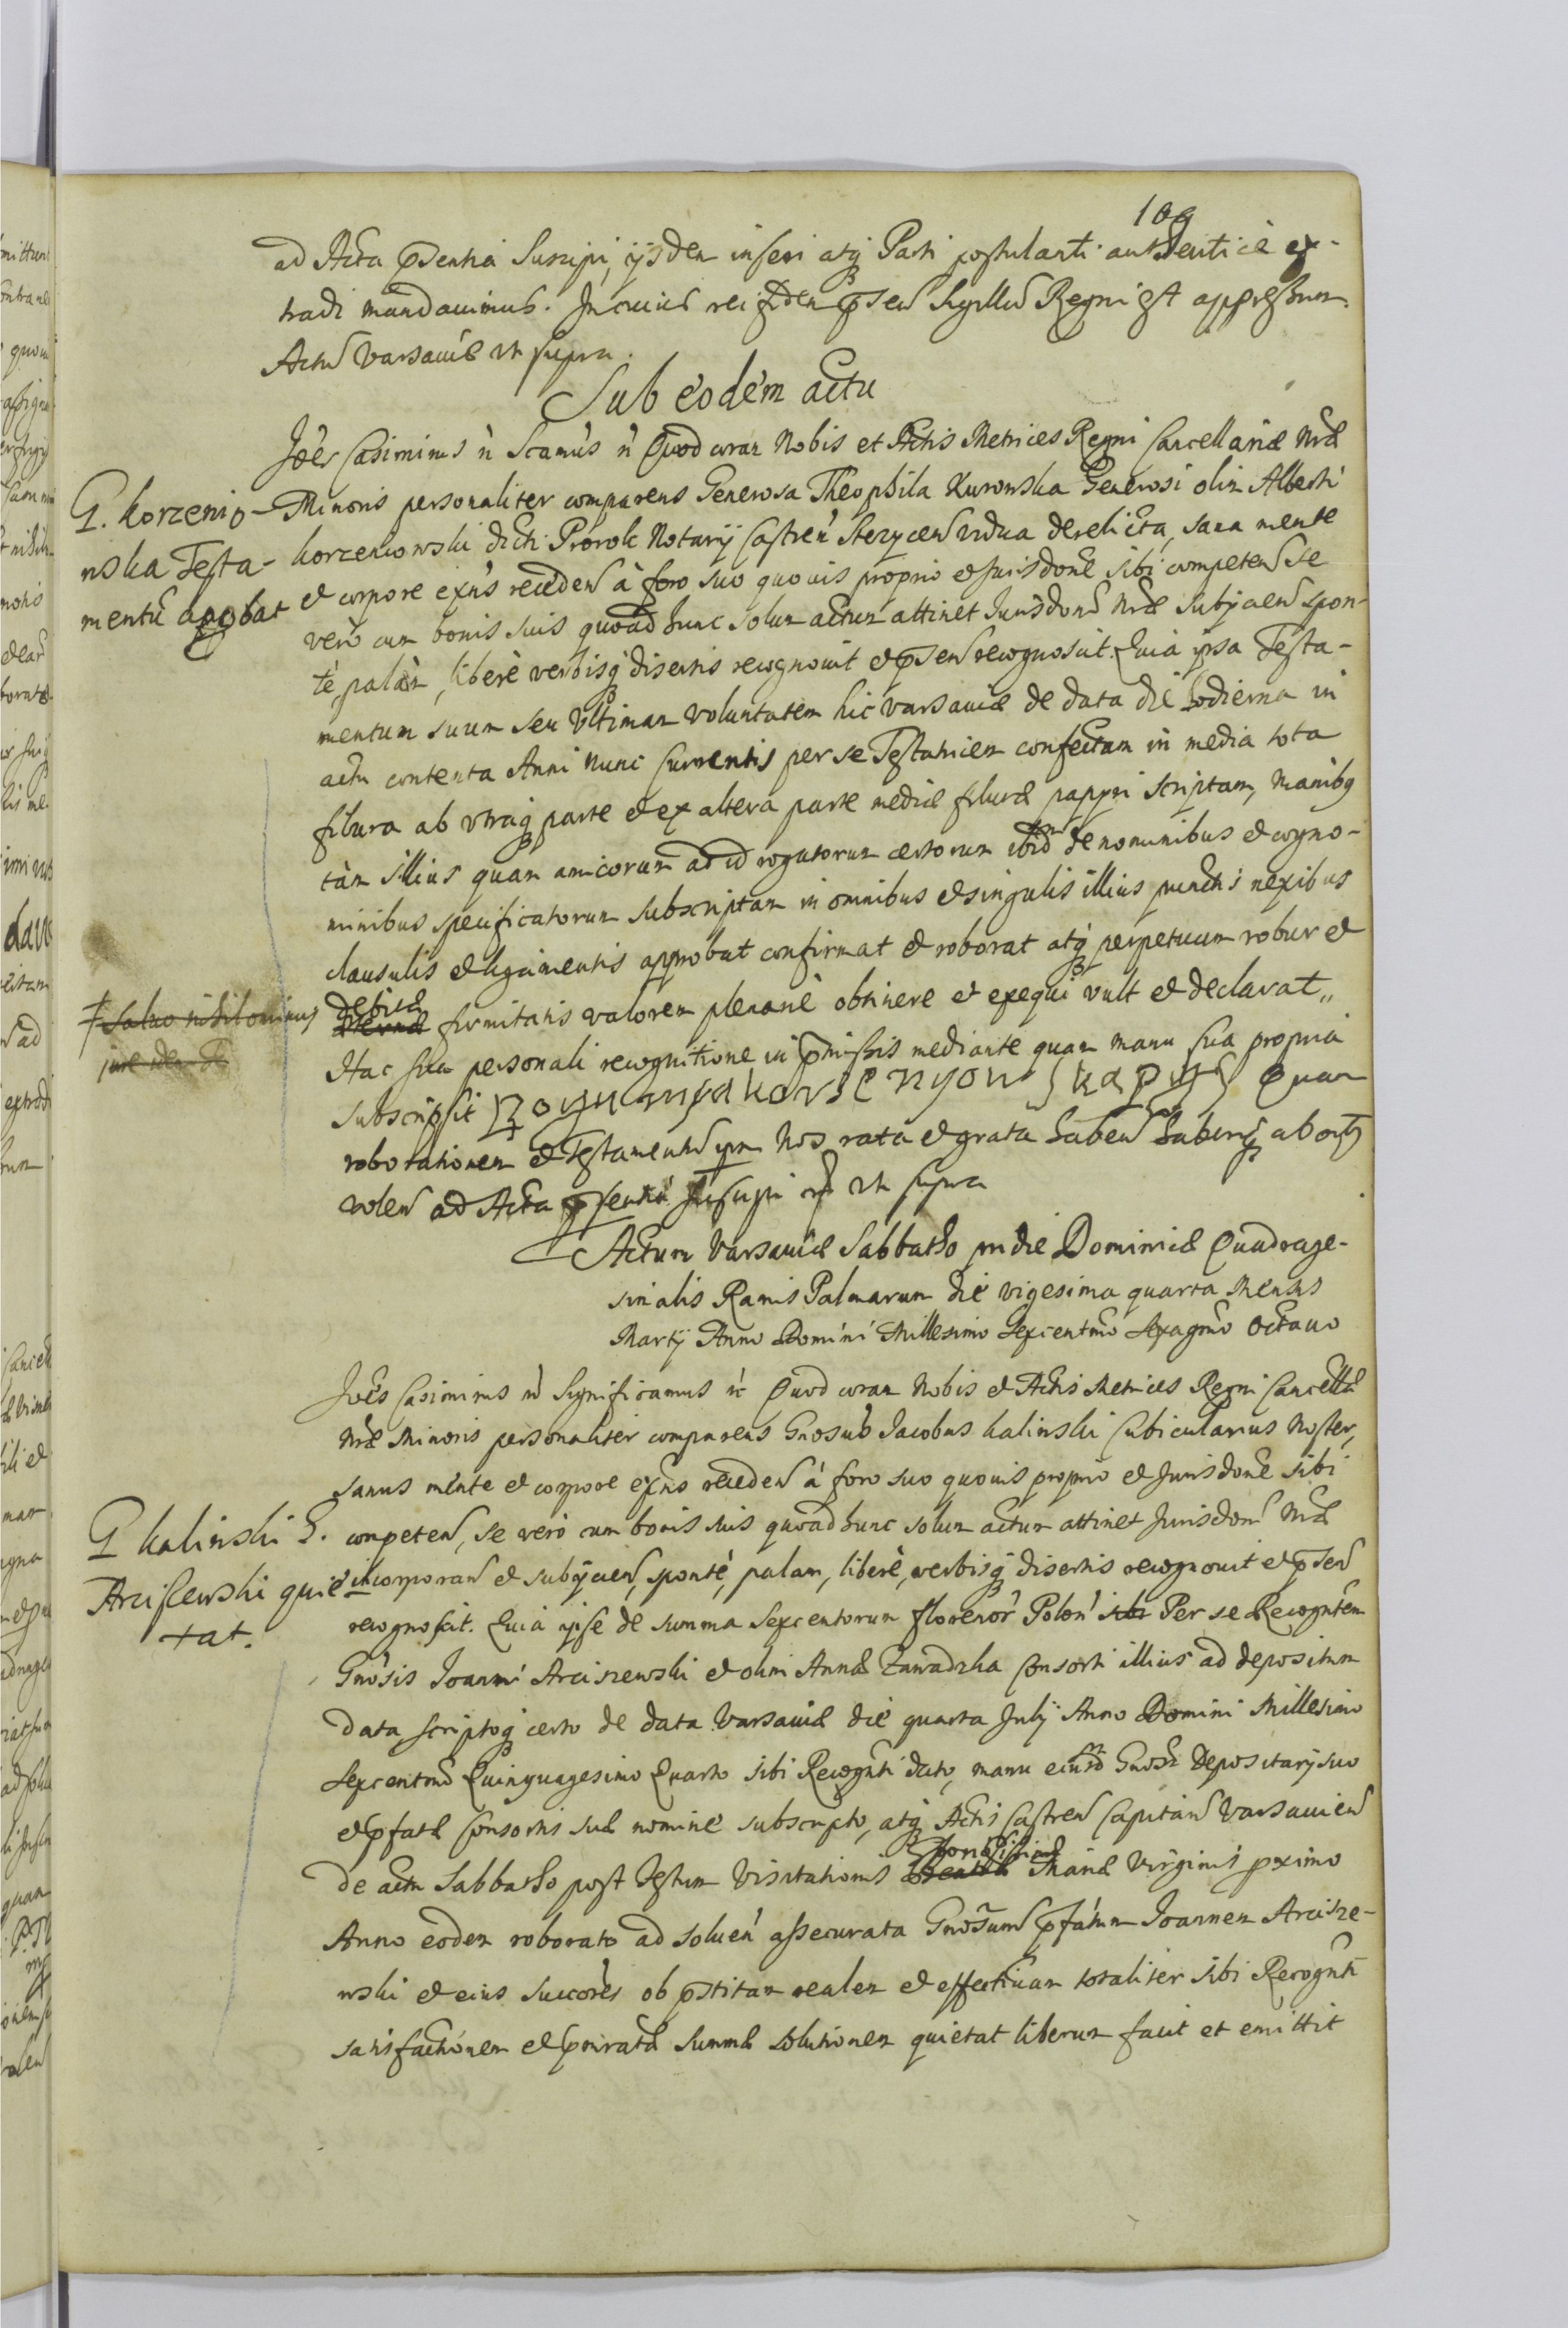 109
ad Acta p̄sentia Suscipi, ijsdem inseri atq́ Parti postulanti authenticè ex-
tradi mandauimus. In cuius rei fidem p̄sen̄ Sigillū Regni est appressum.
Actū Varsauiæ vt supra.
Sub eodem actu
Joẽs Casimirus ñ Scamus ñ Quod coram Nobis et Actis Metrices Regni Cancellariæ Nrẽ
Minoris personaliter comparens Generosa Theophila Kurowska Generosi olim Alberti
G. Korzenio-
wska Testa-
mentū aprobat
Korzeniowski dicti Prorok Notarij Castreń Stezyceń vidua derelicta, sana mente
et corpore exñs receden̄ à foro suo quouis proprio et Jurisdoñe sibi competen̄ se
verò cum bonis suis quoad hunc solum actum attinet Jurisdoñi Nrẽ Subijcien̄ spon-
tè palàm, liberè verbisq́ disertis recognouit et p̄sen̄ recognoscit. Quia ipsa Testa-
mentum suum seu Vltimam voluntatem hic Varsauiæ de data die hodierna in
actu contenta Anni nunc Currentis per se Testatricem confectam in media tota
filura ab vtraq́ parte et ex altera parte mediæ filuræ pappyri scriptam, Manibq
tàm illius quam amicorum ad id rogatorum certorum ibidm̃ de nominibus et cogno-
minibus specificatorum subscriptam in omnibus et singulis illius punctis nexibus
clausulis et ligamentis approbat confirmat et roborat atq́ perpetuum robur et
‡ Saluo nihilominus
jure
debitæ
firmitatis valorem plenariè obtinere et exequi vult et declarat„
Hac sua personali recognitione in p̄missis mediante quam manu sua propria
subscripsit Quam
roborationem et Testamentū ipm̃ Nos rata et grata haben̄ haberiq́ ab oĩbq
volen̄ ad Acta p̄sentia Suscipi vt supra
Actum Varsauiæ Sabbatho pridie Dominicæ Quadrage-
simalis Ramis Palmarum die vigesima quarta Mensis
Martij Anno Domini Millesimo Sexcentm̃o Sexagm̃o Octauo
Joẽs Casimirus ñ Significamus ñ Quod coram Nobis et Actis Metrices Regni Cancellæ
Nrẽ Minoris personaliter comparens Gnosus Jacobus Kalinski Cubicularius Noster,
sanus mente et corpore exñs receden̄ à foro suo quouis proprio et Jurisdoñe sibi
G Kalinski G.
Arciszewski quie
tat.
competen̄, se verò cum bonis suis quoad hunc solum actum attinet Jurisdoñi Nrẽ
incorporan̄ et subijcien̄, sponte, palam, liberè, verbisq́ disertis recognouit et p̄sen̄
recognoscit. Quia ipse de summa Sexcentorum florenoŕ Poloń Per se Recogntem
Gnosis Joanni Arciszewski et olim Annæ Zawadzka Consorti illius ad depositum
data scriptoq́ certo de data Varsauiæ die quarta Julij Anno Domini Millesimo
Sexcentmõ Quinquagesimo Quarto sibi Recognti dato, manu eiusdm̃ Gnosi Depositarij suo
et p̄fatæ Consortis suæ nomine subscripto, atq́ Actis Castren̄ Capitan̄ Varsauien̄
de actu Sabbatho post Festum Visitationis Mariæ Virginis proximo
Anno eodem roborato ad soluen̄ assecurata Gnosum p̄fatum Joannem Arcisze-
wski et eius succores ob p̄stitam realem et effectiuam totaliter sibi Recognti
satisfactionem et p̄miratæ Summæ solutionem quietat liberum facit et emittit